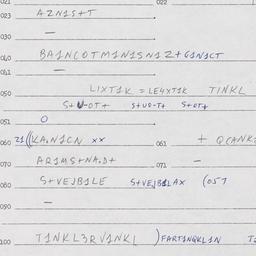 021 022
023 AZN1S+T
030 —
040 BA1NCOTM1N1SN1Z+G1N1CT
041 —
050 L1XT1K = LE4XT1K T1NKL
S+U-OT+ S+UO-T+ S+OT+
051 O
060 21((KA.N1CN xx 061 + QCANK
070 AR1MS+NA.D+ 071 —
080 S+VEJB1LE S+VEJB1LAX (057
090 —
100 T1NKL3RV1NKL )FART1NQKL1N